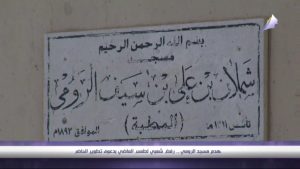 بسم الله الرحمن الرحيم
مسجد
شملان بن علي بن سيف الرومي
(المطبة)
تأسس
الموافق ١٨٩٣م
هدم مسجد الرومي .. رفض شعبي لطمس الماضي بدعوى تطوير الحاضر